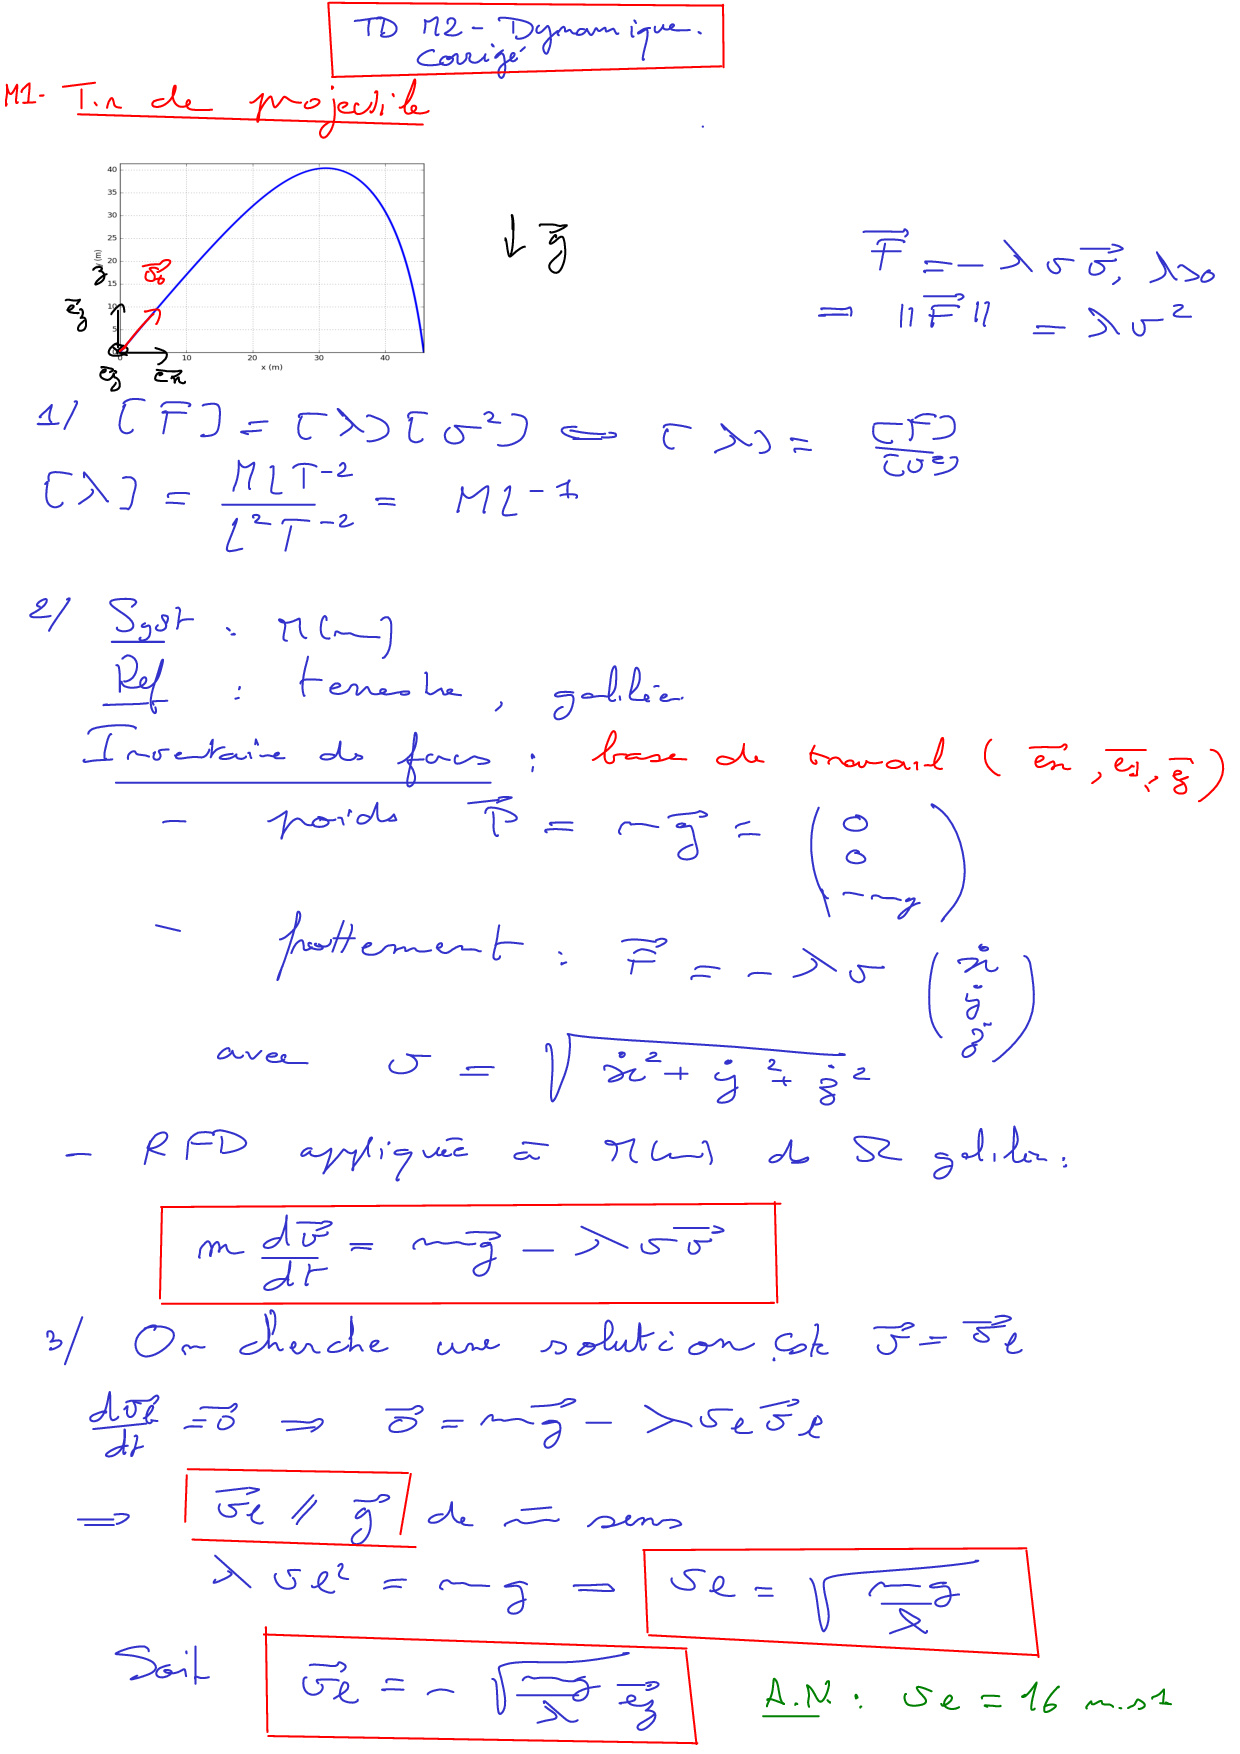 TD M2 - Dynamique.
Corrigé
M1- Tir de projectile
40
35
30
25
20
15
10
5
0 10 20 30 40
x (m)
z (m)
z
v⃗₀
e⃗z
e⃗y e⃗x
↓ g⃗
F⃗ = - λ v v⃗, λ>0
⇒ ||F⃗|| = λ v²
1/ [F] = [λ][v²] ⇔ [λ] = [F]/[v²]
[λ] = MLT⁻²/L²T⁻² = ML⁻¹
2/ Syst : M(m)
Ref : terrestre, galiléen
Inventaire des forces : base de travail (e⃗x, e⃗y, e⃗z)
- poids P⃗ = mg⃗ = (0
0
-mg)
- frottement : F⃗ = - λ v (ẋ
ẏ
ż)
avec v = √(ẋ² + ẏ² + ż²)
- RFD appliquée à M(m) ds R galiléen :
m dv⃗/dt = mg⃗ - λ v v⃗
3/ On cherche une solution cste v⃗ = v⃗l
dv⃗l/dt = 0⃗ ⇒ 0⃗ = mg⃗ - λ vl v⃗l
⇒ v⃗l // g⃗ de m̄ sens
λ vl² = mg ⇒ vl = √(mg/λ)
Soit v⃗l = - √(mg/λ) e⃗z A.N. : vl = 16 m.s1